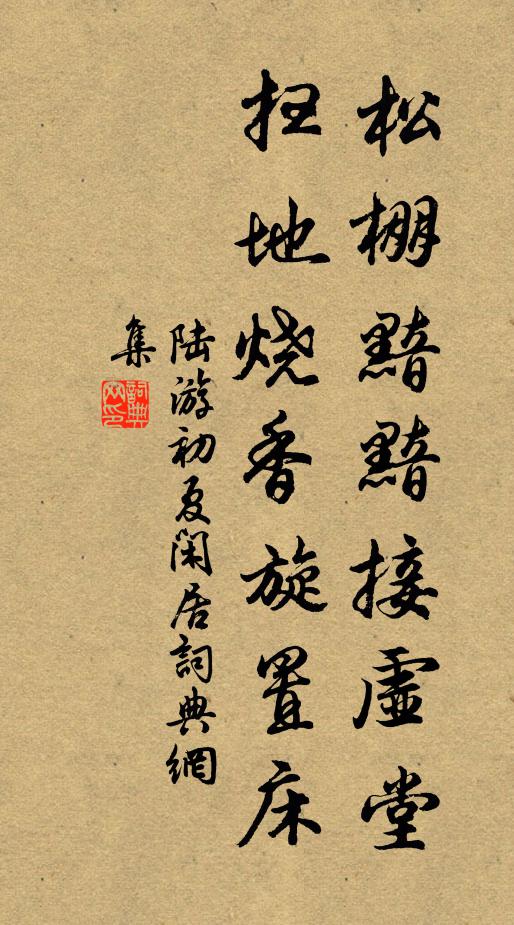 松棚黯黯接虚堂
扫地烧香旋置床
陆游初夏闲居詞典網
集
詞典網印